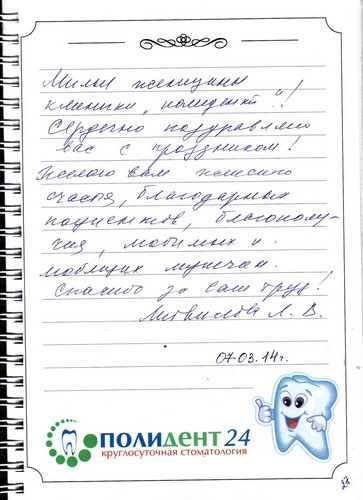 Милые женщины
клиники „полидент"!
Сердечно поздравляю
вас с праздником!
Желаю вам женского
счастья, благодарных
пациентов, благополу-
чия, любимых и
любящих мужчин.
Спасибо за ваш труд!
Л. В.
07.03.14г.
ПОЛИДЕНТ 24
круглосуточная стоматология